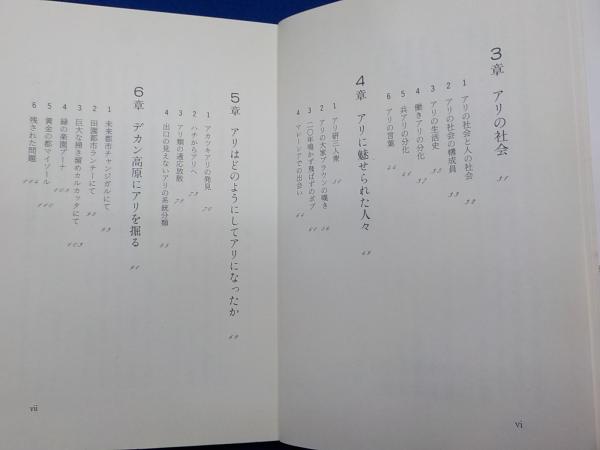 3章 アリの社会
1 アリの社会と人の社会
2 アリの社会の構成員
3 アリの生活史
4 働きアリの分化
5 兵アリの分化
6 アリの言葉
4章 アリに魅せられた人々
1 アリ研三人衆
2 アリの大家ブラウンの嘆き
3 二〇年鳴かず飛ばずのボブ
4 マレーシアでの出会い
vi
5章 アリはどのようにしてアリになったか
1 アカツキアリの発見
2 ハチからアリへ
3 アリ類の適応放散
4 出口の見えないアリの系統分類
6章 デカン高原にアリを掘る
1 未来都市チャンジガルにて
2 田園都市ランチーにて
3 巨大な掃き溜めカルカッタにて
4 緑の楽園プーナ
5 黄金の都マイソール
6 残された問題
vii